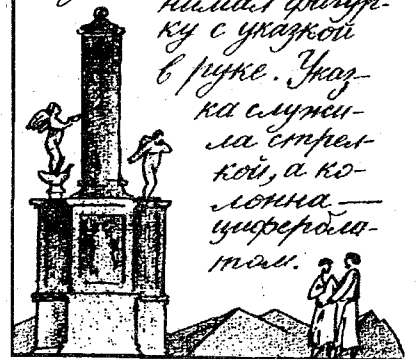 нимал фигур-
ку с указкой
в руке. Указ-
ка служи-
ла стрел-
кой, а ко-
лонна —
цифербла-
том.